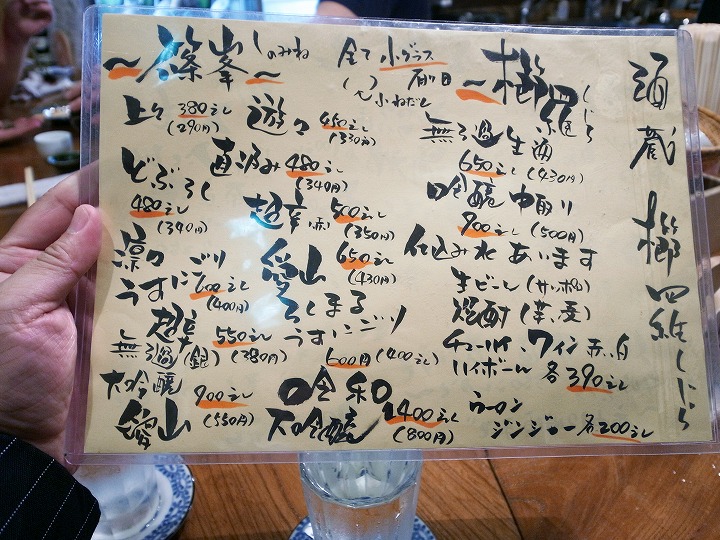 酒蔵 櫛羅 しじら
～櫛羅～ くじら
無ろ過生酒
650えん (430円)
吟醸 中取り
900えん (500円)
仕込み水あります
生ビール (サッポロ)
焼酎 (芋、麦)
チューハイ、ワイン 赤、白
ハイボール 各390えん
ウーロン
ジンジャー 各200えん
全て小グラス
有〼
( )小ねだん
～篠峯～ しのみね
上々 380えん
(290円)
遊々 450えん
(330円)
どぶろく
480えん
(340円)
直汲み 480えん
(340円)
超辛 赤 500えん
(350円)
凛々
うすにごり 600えん
(400円)
愛山 650えん
(430円)
ろくまる
うすにごり
600円 (400えん)
超辛 550えん
無ろ過(銀) (380円)
大吟醸
愛山
900えん
(550円)
吟和
大吟醸 1400えん
(800円)